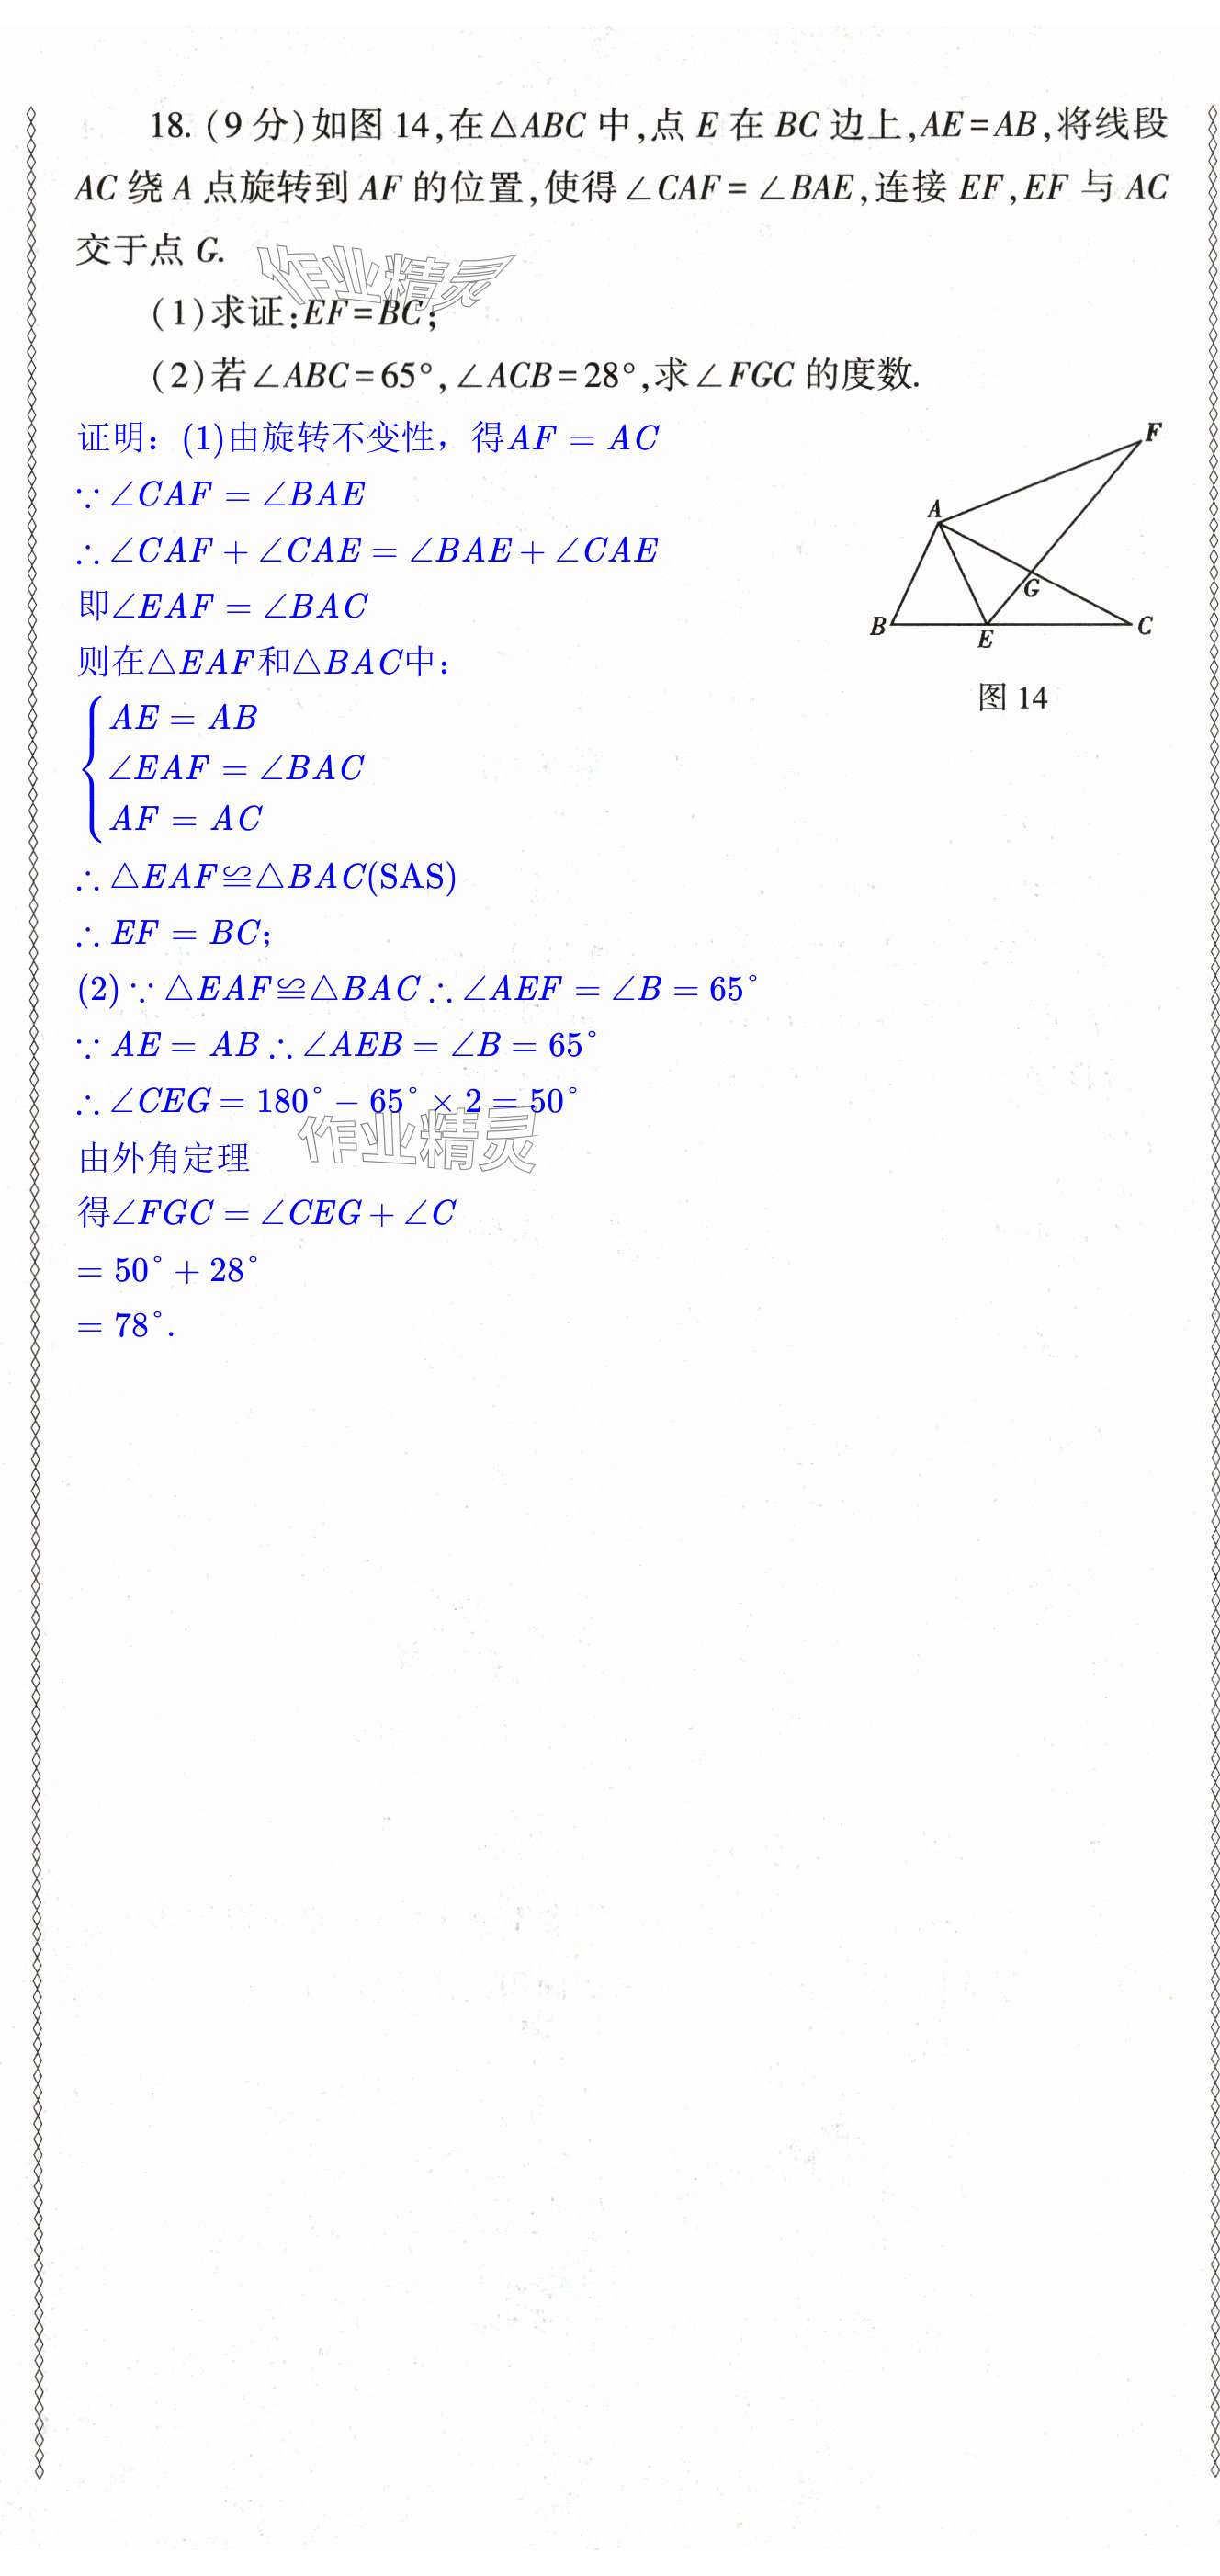 18. (9 分)如图 14,在△ABC 中,点 E 在 BC 边上,AE=AB,将线段
AC 绕 A 点旋转到 AF 的位置,使得∠CAF=∠BAE,连接 EF,EF 与 AC
交于点 G.
作业精灵
(1)求证:EF=BC;
(2)若∠ABC=65°,∠ACB=28°,求∠FGC 的度数.
证明：(1)由旋转不变性，得AF = AC
∵ ∠CAF = ∠BAE
∴ ∠CAF + ∠CAE = ∠BAE + ∠CAE
即∠EAF = ∠BAC
则在△EAF和△BAC中：
AE = AB
∠EAF = ∠BAC
AF = AC
∴ △EAF≌△BAC(SAS)
∴ EF = BC;
(2) ∵ △EAF≌△BAC ∴ ∠AEF = ∠B = 65°
∵ AE = AB ∴ ∠AEB = ∠B = 65°
∴ ∠CEG = 180° − 65° × 2 = 50°
作业精灵
由外角定理
得∠FGC = ∠CEG + ∠C
= 50° + 28°
= 78°.
F
A
G
B
E
C
图 14